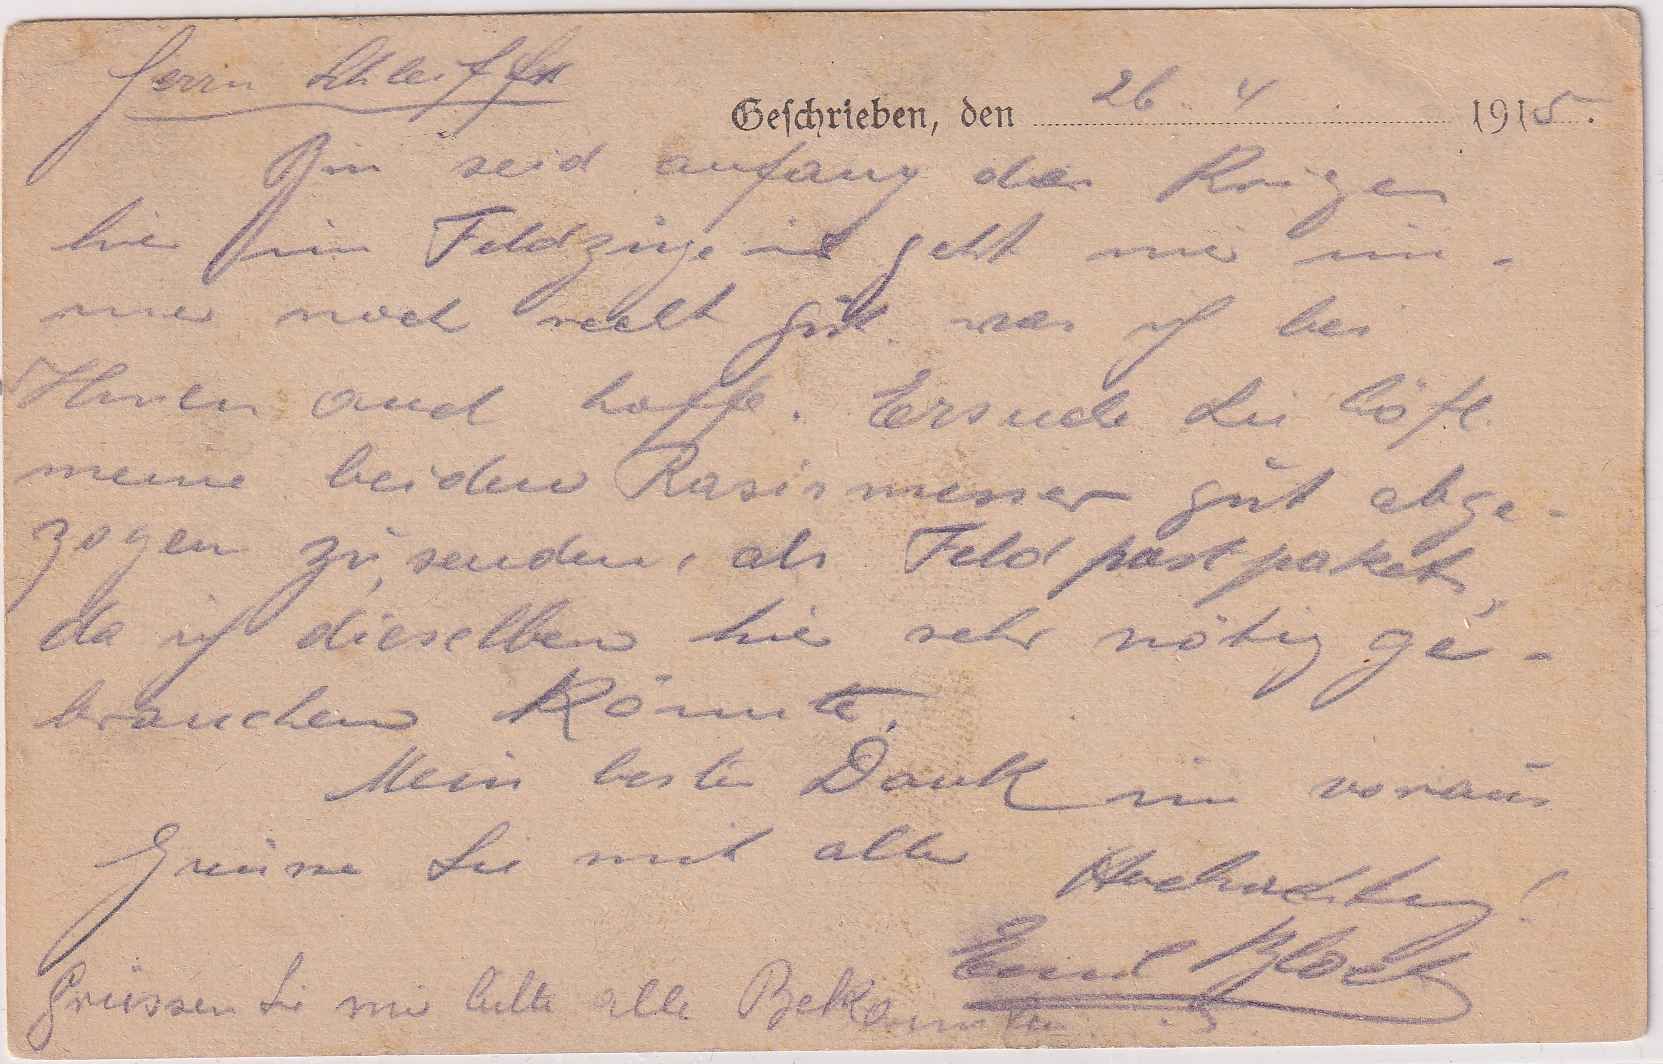 Herrn Schleiffer
Geschrieben, den 26. 4 1915.
Bin seid anfang des Kriges
hier im Feldzuge es geht mir im-
mer noch recht gut was ich bei
Ihnen auch hoffe. Ersuche Sie höfl.
meine beiden Rasirmesser gut abge-
zogen zu senden, als Feldpostpaket,
da ich dieselben hier sehr nötig ge-
brauchen könnte.
Mein besten Dank im voraus
Grüsse Sie mit aller Hochachtung!
Emil Bloch
Grüssen Sie mir bitte alle Bekannten